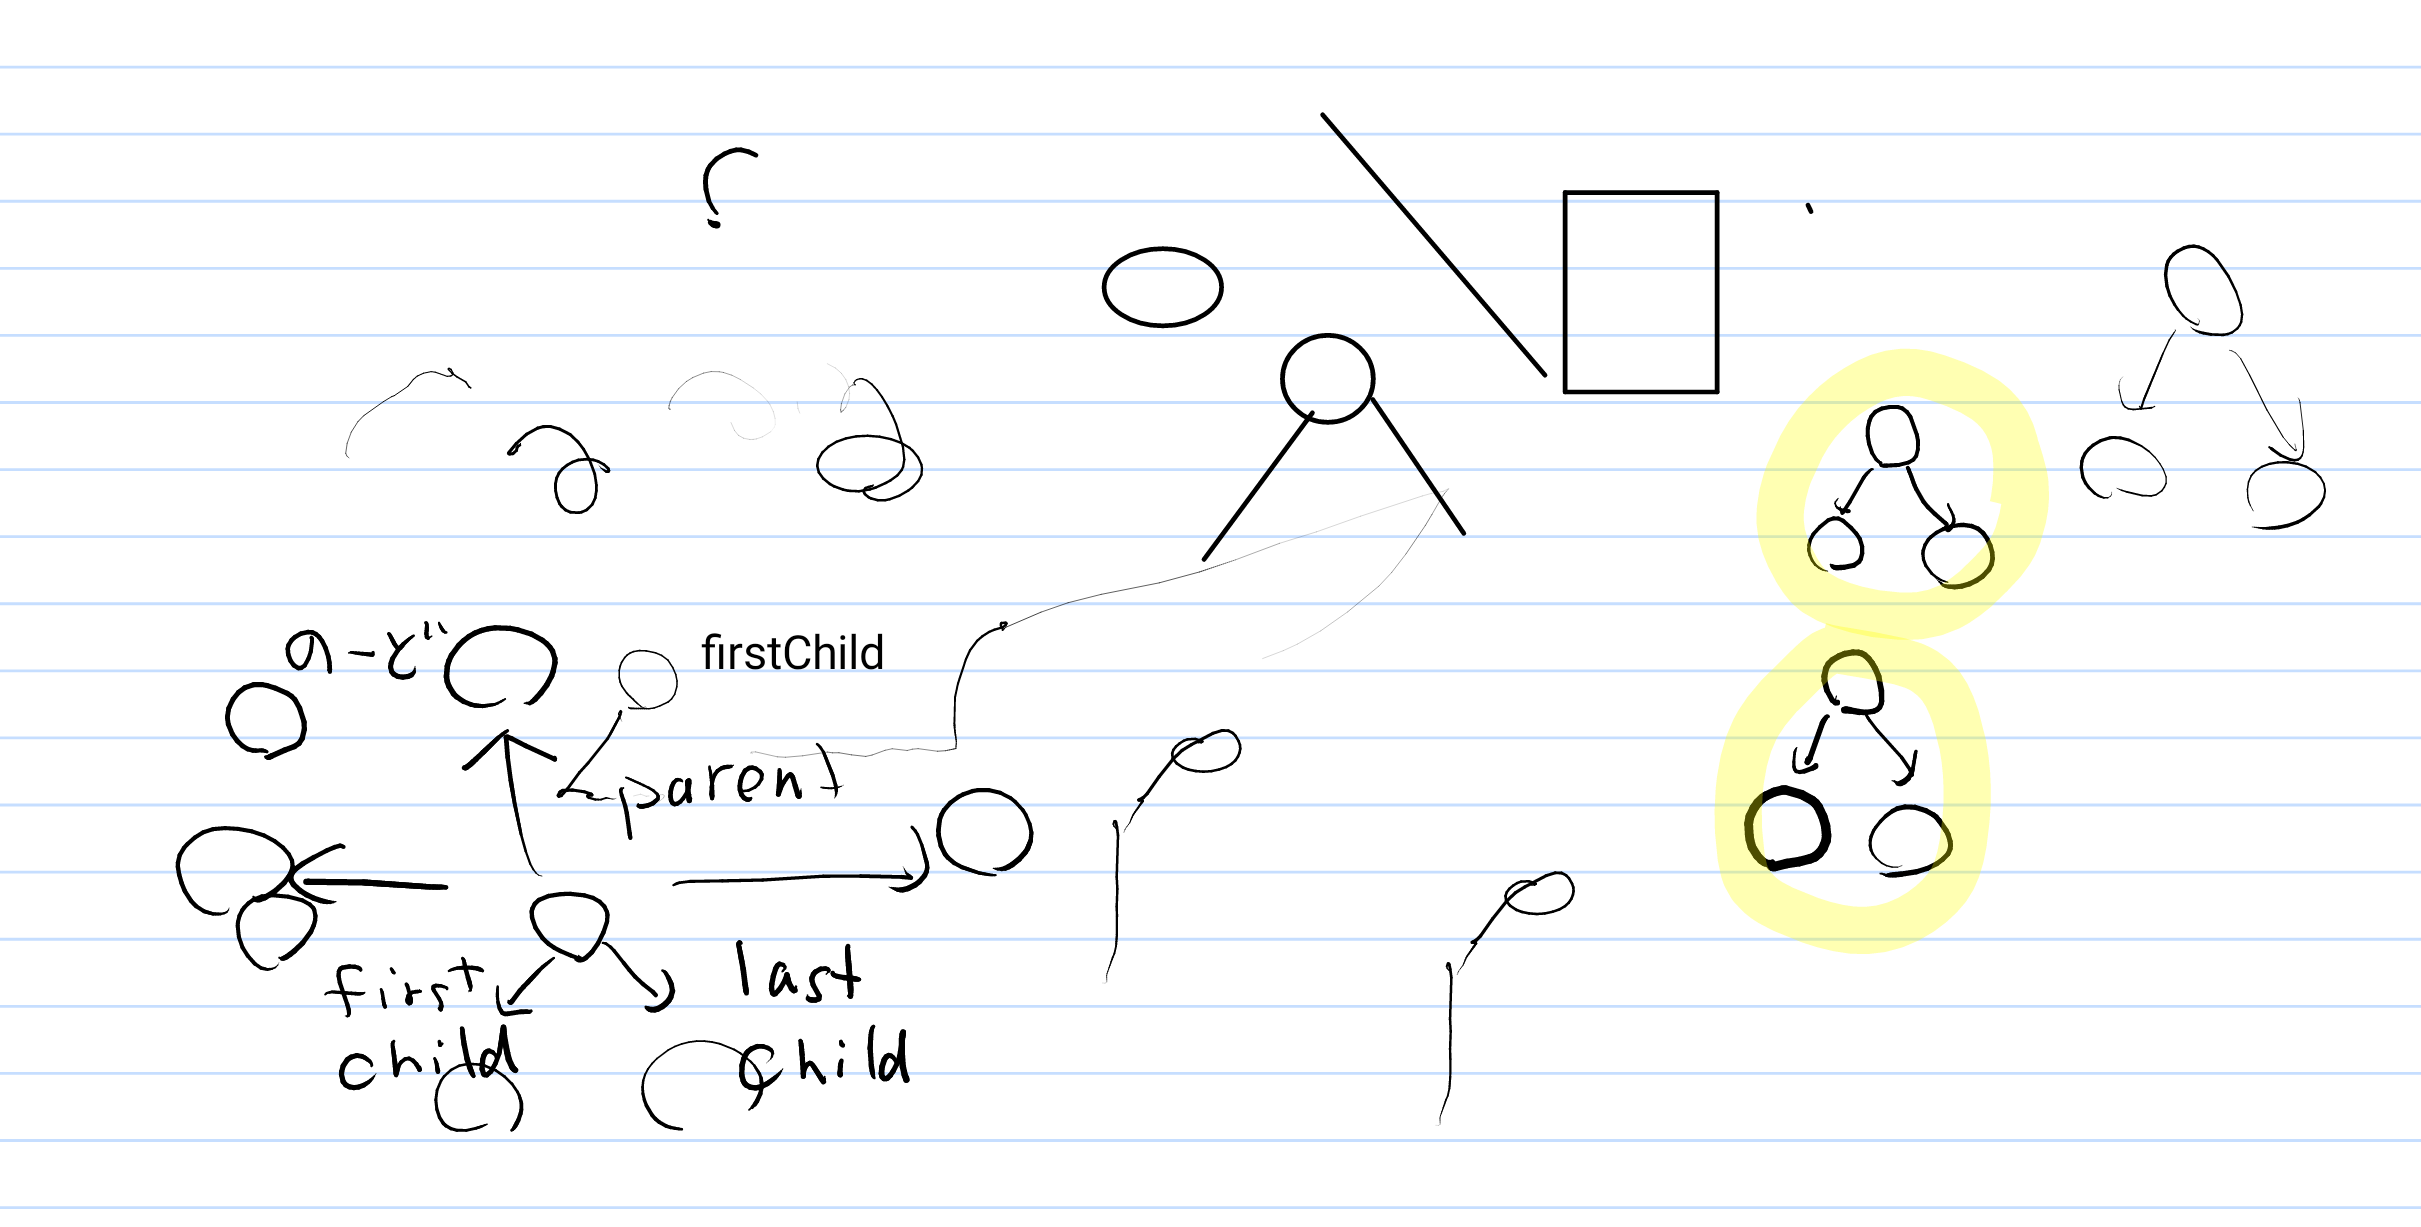 ?
firstChild
parent
first
child
last
child